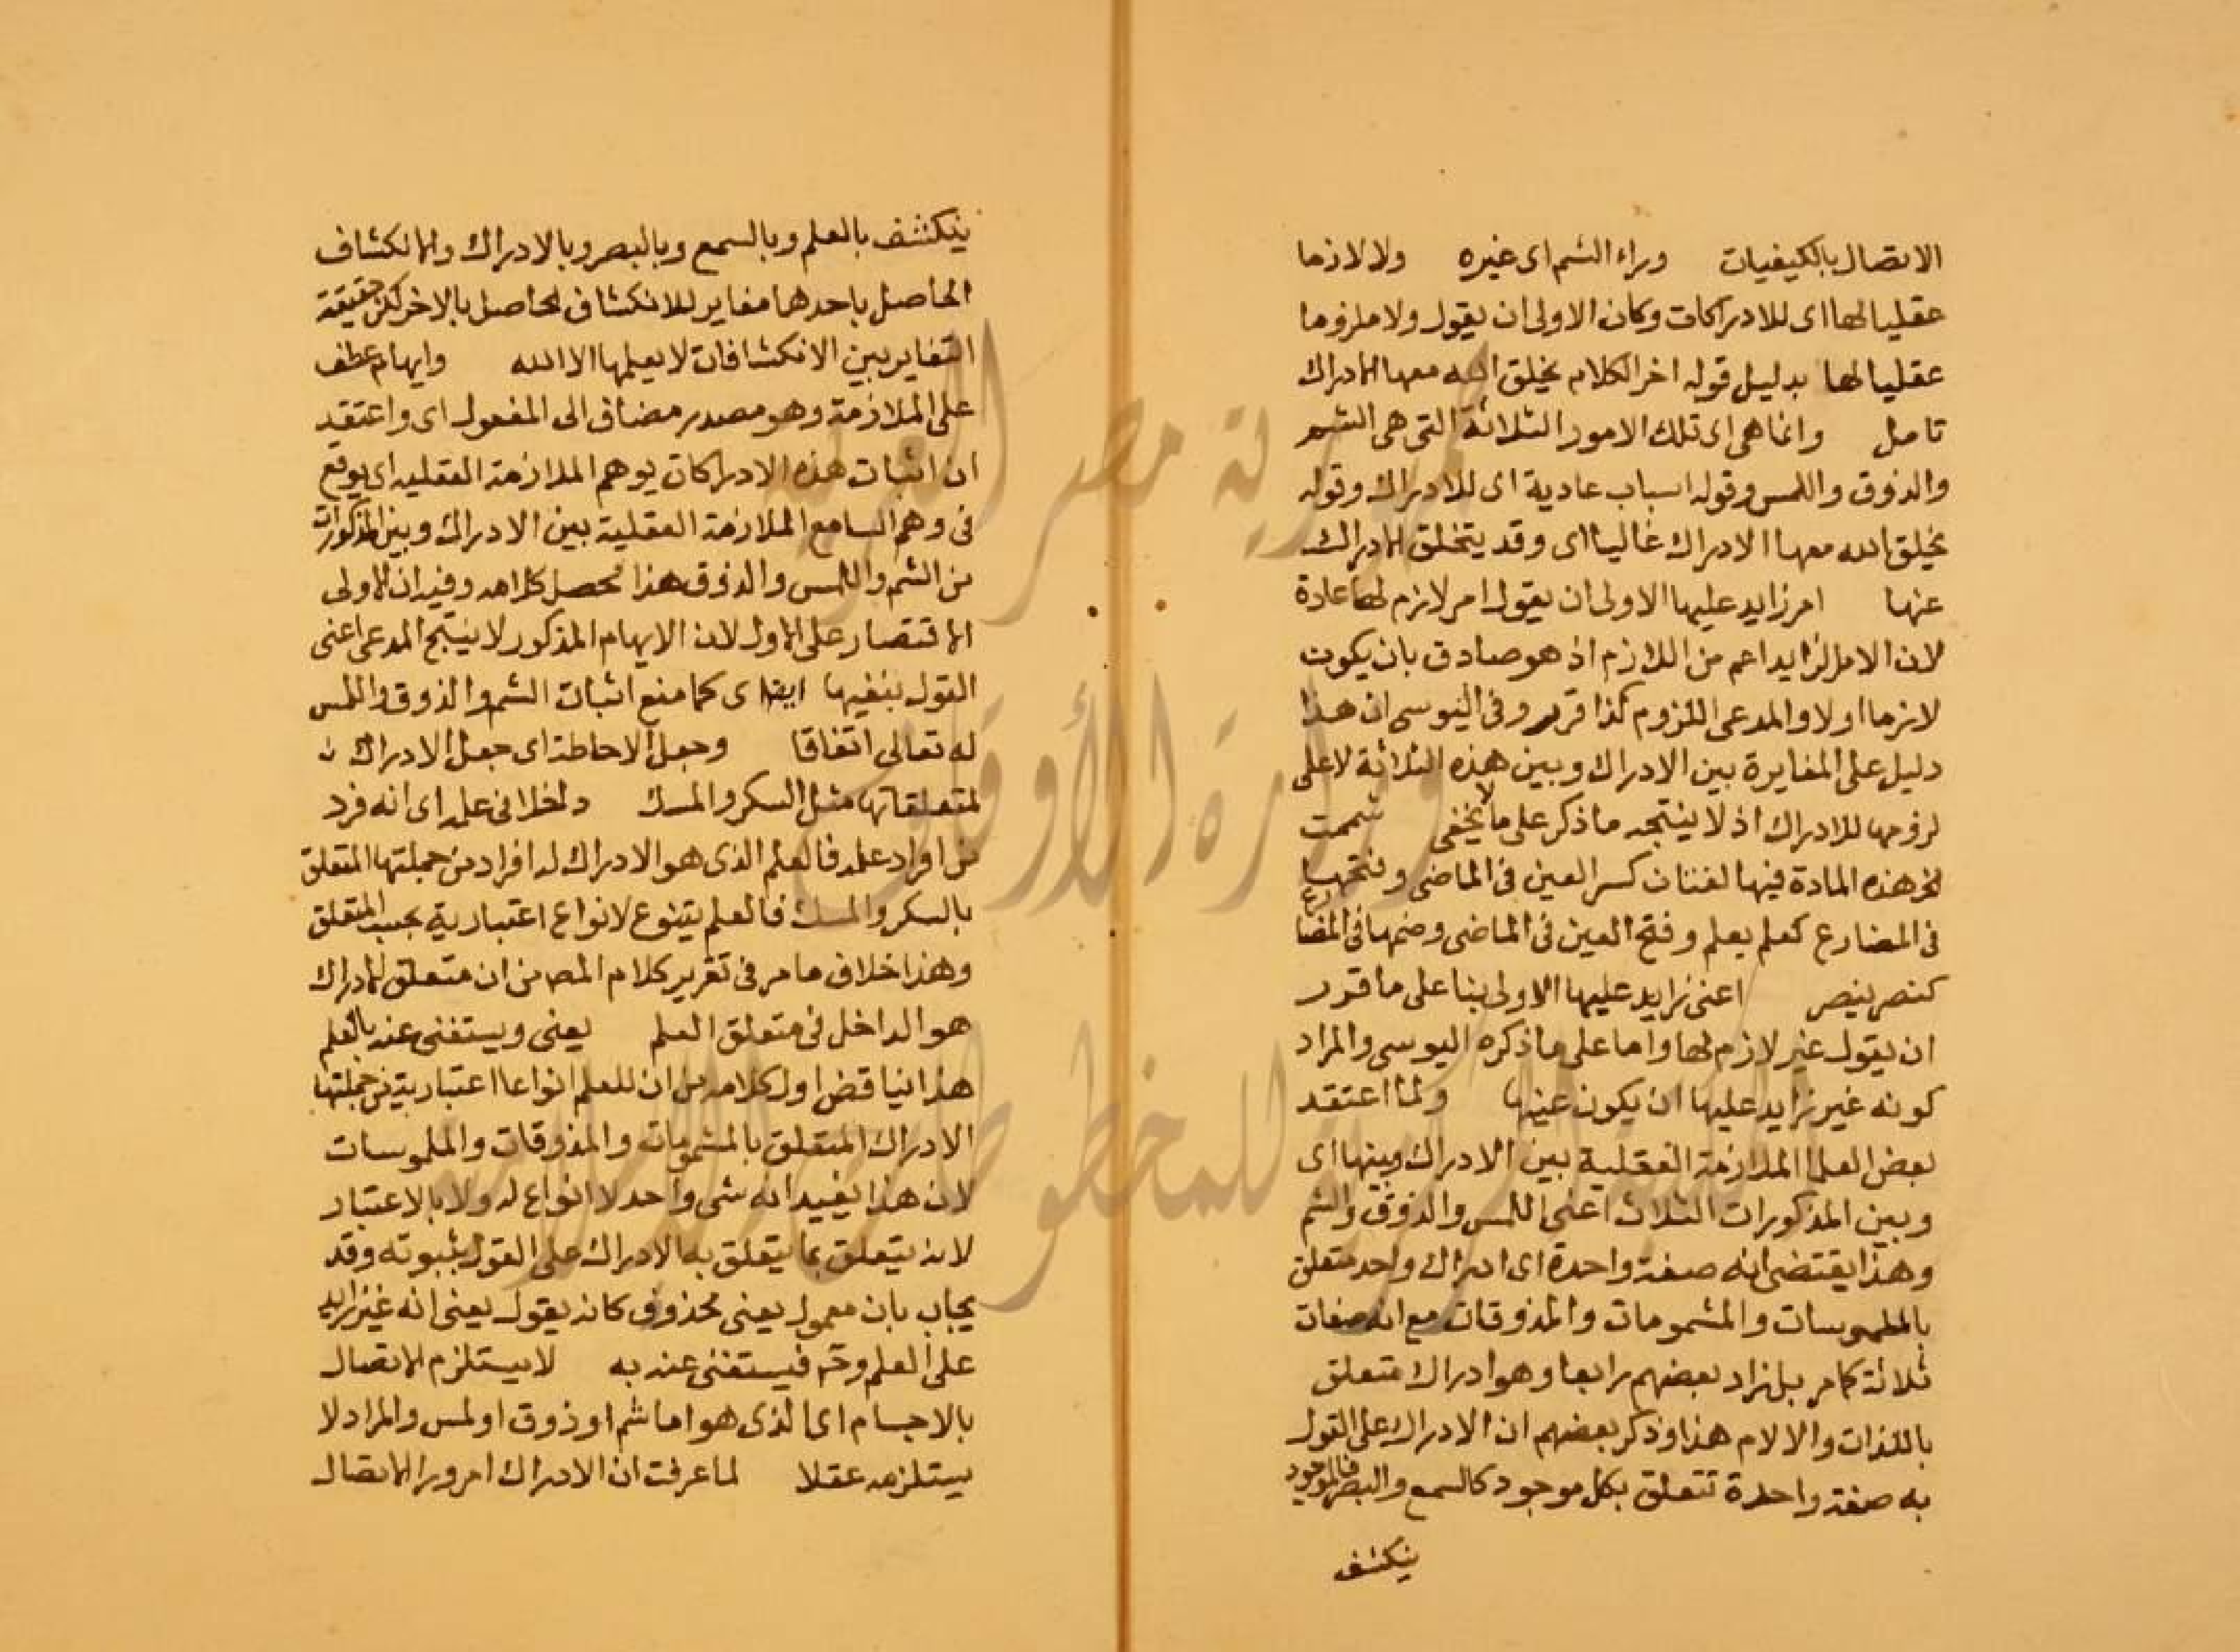 الاتصال بالكيفيات وراء الشم اى غيره ولا لازما
عقليا لها اى للادراكات وكان الاولى ان يقول ولا ملزوما
عقليا لها بدليل قوله اخر الكلام يخلق الله معها الادراك
تامل وانما هى اى تلك الامور الثلاثة التى هى الشم
والذوق واللمس وقوله اسباب عادية اى للادراك وقوله
يخلق الله معها الادراك غاليا اى وقد يتخلق الادراك
عنها امر زايد عليها الاولى ان يقول امر لازم لها عادة
لان الامر الزايد اعم من اللازم اذ هو صادق بان يكون
لازما اولا والمدعى اللزوم كذا قرر وفى اليوسى ان هذا
دليل على المغايرة بين الادراك وبين هذه الثلاثة لا على
لزومها للادراك اذ لا ينتجه ما ذكر على ما لا يخفى شممت
لخ هذه المادة فيها لغتان كسر العين فى الماضى وفتحها
فى المضارع كعلم يعلم وفتح العين فى الماضى وضمها فى المضارع
كنصر ينصر اعنى زايد عليها الاولى بنا على ما قرر
ان يقول غير لازم لها واما على ما ذكره اليوسى والمراد
كونه غير زايد عليها ان يكون عينها ولما اعتقد
بعض العلما الملازمة العقلية بين الادراك وبينها اى
وبين المذكورات الثلاث اعنى اللمس والذوق والشم
وهذا يقتضى انه صفة واحدة اى ادراك واحد متعلق
بالملموسات والمشمومات والمذوقات مع انه صفات
ثلاثة كما مر بل زاد بعضهم رابعا وهو ادراك متعلق
باللذات والالام هذا وذكر بعضهم ان الادراك على القول
به صفة واحدة تتعلق بكل موجود كالسمع والبصر فالموجود
ينكشف
ينكشف بالعلم وبالسمع وبالبصر وبالادراك والانكشاف
الحاصل باحدها مغاير للانكشاف الحاصل بالاخر لكن حقيقة
التغاير بين الانكشافات لا يعلمها الا الله وايهام عطف
على الملازمة وهو مصدر مضاف الى المفعول اى واعتقد
ان اثبات هذه الادراكات يوهم الملازمة العقلية اى يوقع
فى وهم السامع الملازمة العقلية بين الادراك وبين المذكورات
من الشم واللمس والذوق هذا محصل كلامه وفيه ان الاولى
الاقتصار على الاول لان الايهام المذكور لا ينتج المدعى اعنى
القول بنفيها ايضا اى كما منع اثبات الشم والذوق واللمس
له تعالى اتفاقا وجعل الاحاطة اى جعل الادراك
لمتعلقاتها مثل السكر والمسك داخلا فى علمه اى انه فرد
من افراد علمه فالعلم الذى هو الادراك له افراد من جملتها المتعلق
بالسكر والمسك فالعلم يتنوع لانواع اعتبارية بحسب المتعلق
وهذا خلاف ما مر فى تقرير كلام المص من ان متعلق الادراك
هو الداخل فى متعلق العلم يعنى ويستغنى عنه بالعلم
هذا يناقض اول كلامه من ان للعلم انواعا اعتبارية من جملتها
الادراك المتعلق بالمشمومات والمذوقات والملموسات
لان هذا يفيد انه شى واحد لا انواع له ولا بالاعتبار
لانه يتعلق بما يتعلق به الادراك على القول بثبوته وقد
يجاب بان معمول يعنى محذوف كانه يقول يعنى انه غير زايد
على العلم وح فيستغنى عنه به لا يستلزم الاتصال
بالاجسام اى الذى هو اما شم او ذوق او لمس والمراد لا
يستلزمه عقلا لما عرفت ان الادراك امر ورا الاتصال